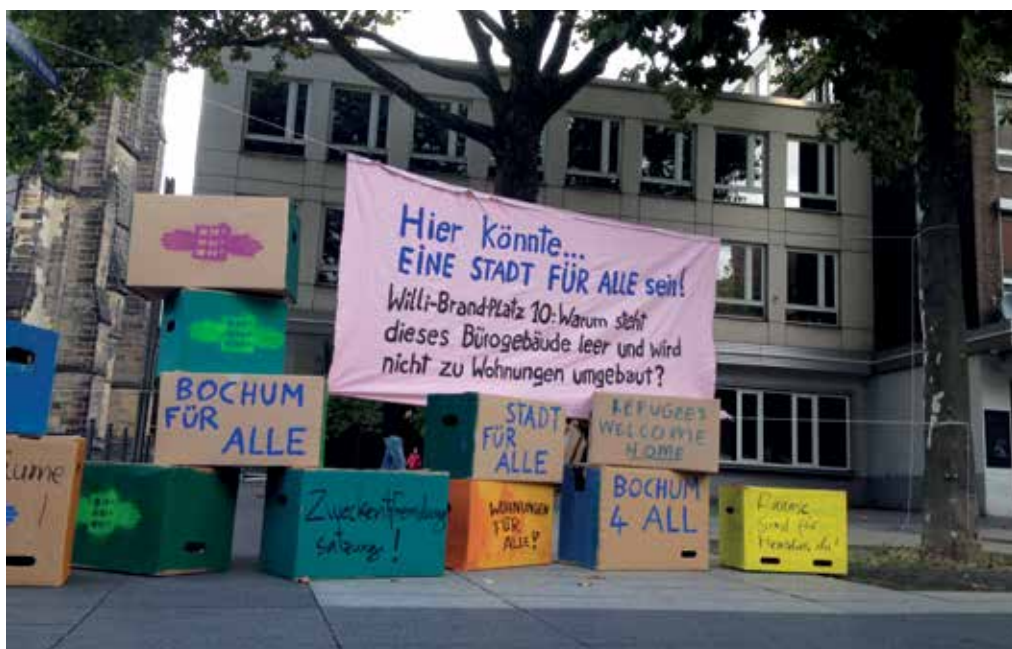 Hier könnte...
EINE STADT FÜR ALLE sein!
Willi-Brand-Platz 10: Warum steht
dieses Bürogebäude leer und wird
nicht zu Wohnungen umgebaut?
BOCHUM
FÜR
ALLE
STADT
FÜR
ALLE
REFUGEES
WELCOME
HOME
Zweckentfremdungs
satzung!
WOHNUNGEN
FÜR
ALLE!
BOCHUM
4 ALL
Räume
sind für
Menschen da!